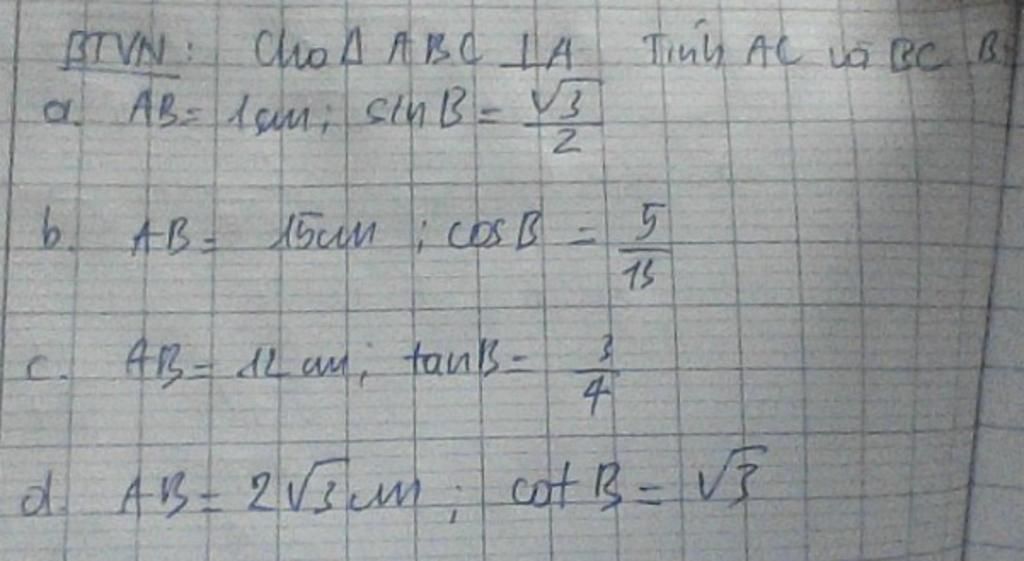 BTVN: Cho Δ ABC ⊥A Tính AC và BC B
a. AB = 1cm; sin B = √3/2
b. AB = 15cm; cos B = 5/13
c. AB = 12 cm; tan B = 3/4
d. AB = 2√3 cm; cot B = √3